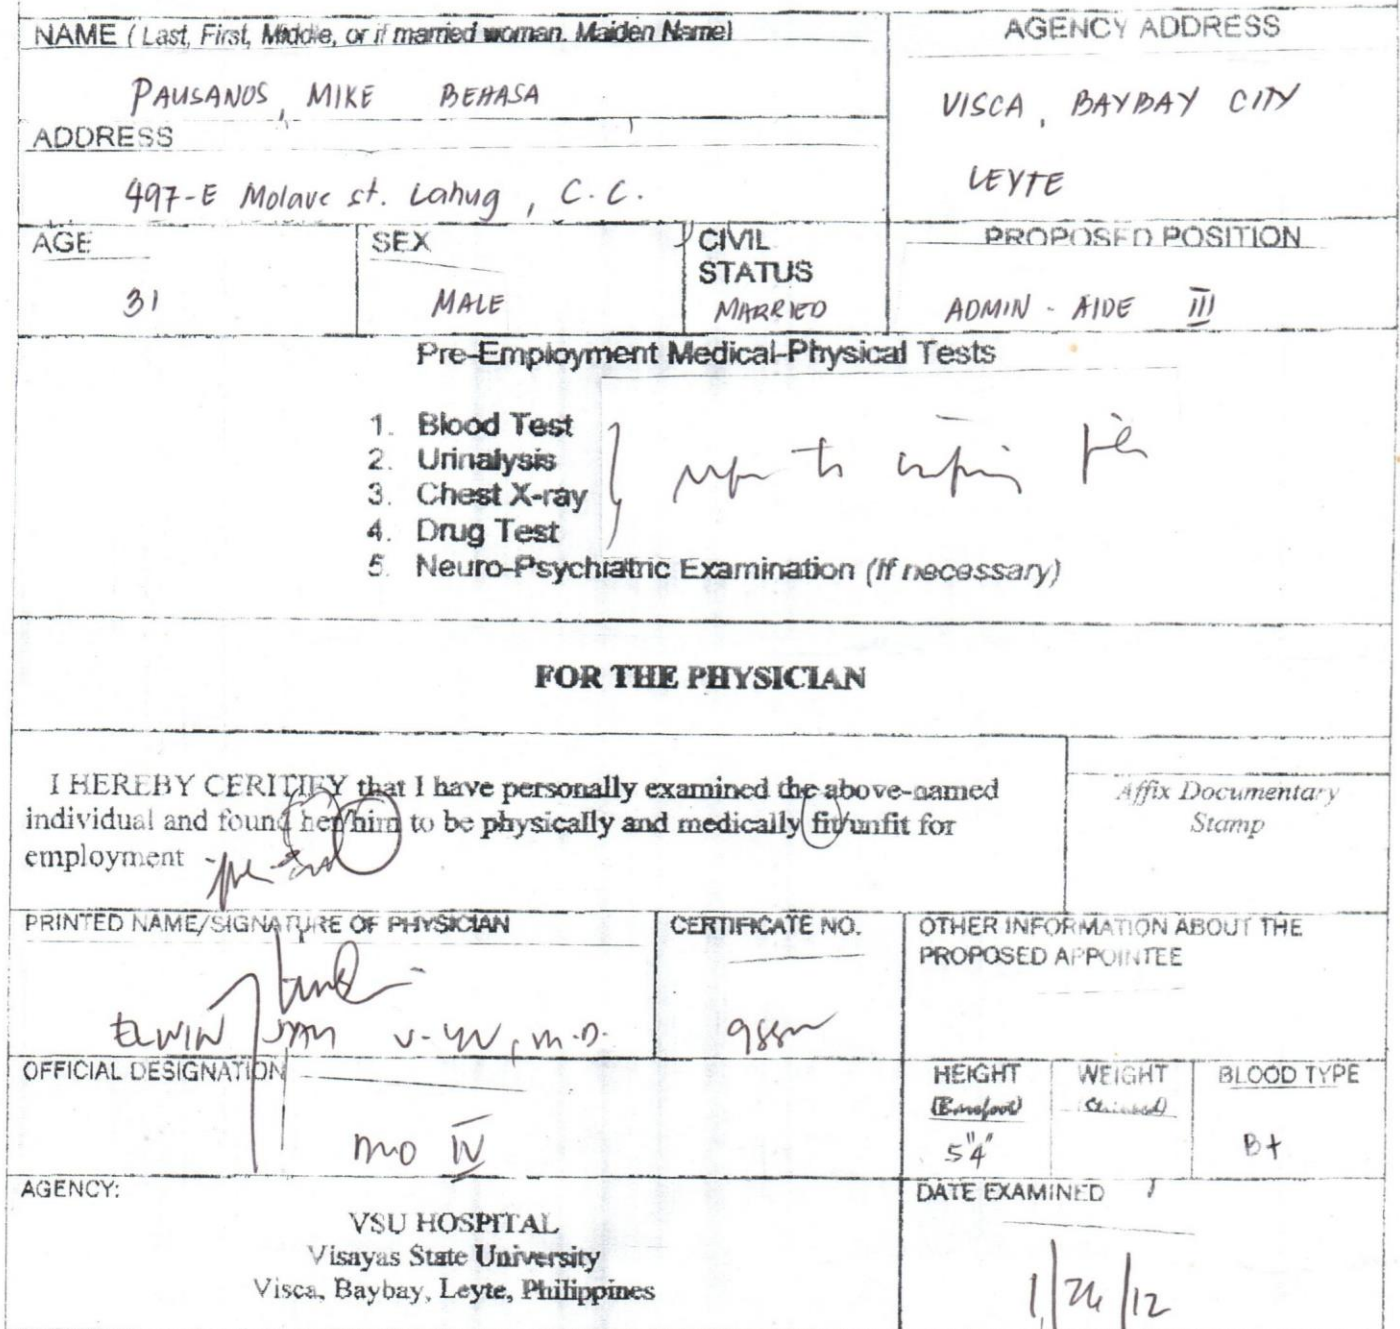 NAME (Last, First, Middle, or if married woman. Maiden Name)
PAUSANOS, MIKE BEHASA
AGENCY ADDRESS
VISCA, BAYBAY CITY
LEYTE
ADDRESS
497-E Molave st. Lahug, C.C.
AGE
31
SEX
MALE
CIVIL
STATUS
MARRIED
PROPOSED POSITION
ADMIN - AIDE III
Pre-Employment Medical-Physical Tests
1. Blood Test
2. Urinalysis
3. Chest X-ray
4. Drug Test
5. Neuro-Psychiatric Examination (if necessary)
FOR THE PHYSICIAN
I HEREBY CERITIFY that I have personally examined the above-named
individual and found her/him to be physically and medically fit/unfit for
employment
Affix Documentary
Stamp
PRINTED NAME/SIGNATURE OF PHYSICIAN
ELWIN V. YU, M.D.
CERTIFICATE NO.
OTHER INFORMATION ABOUT THE
PROPOSED APPOINTEE
OFFICIAL DESIGNATION
MO IV
HEIGHT
(Barefoot)
5"4"
WEIGHT
BLOOD TYPE
B+
AGENCY:
VSU HOSPITAL
Visayas State University
Visca, Baybay, Leyte, Philippines
DATE EXAMINED